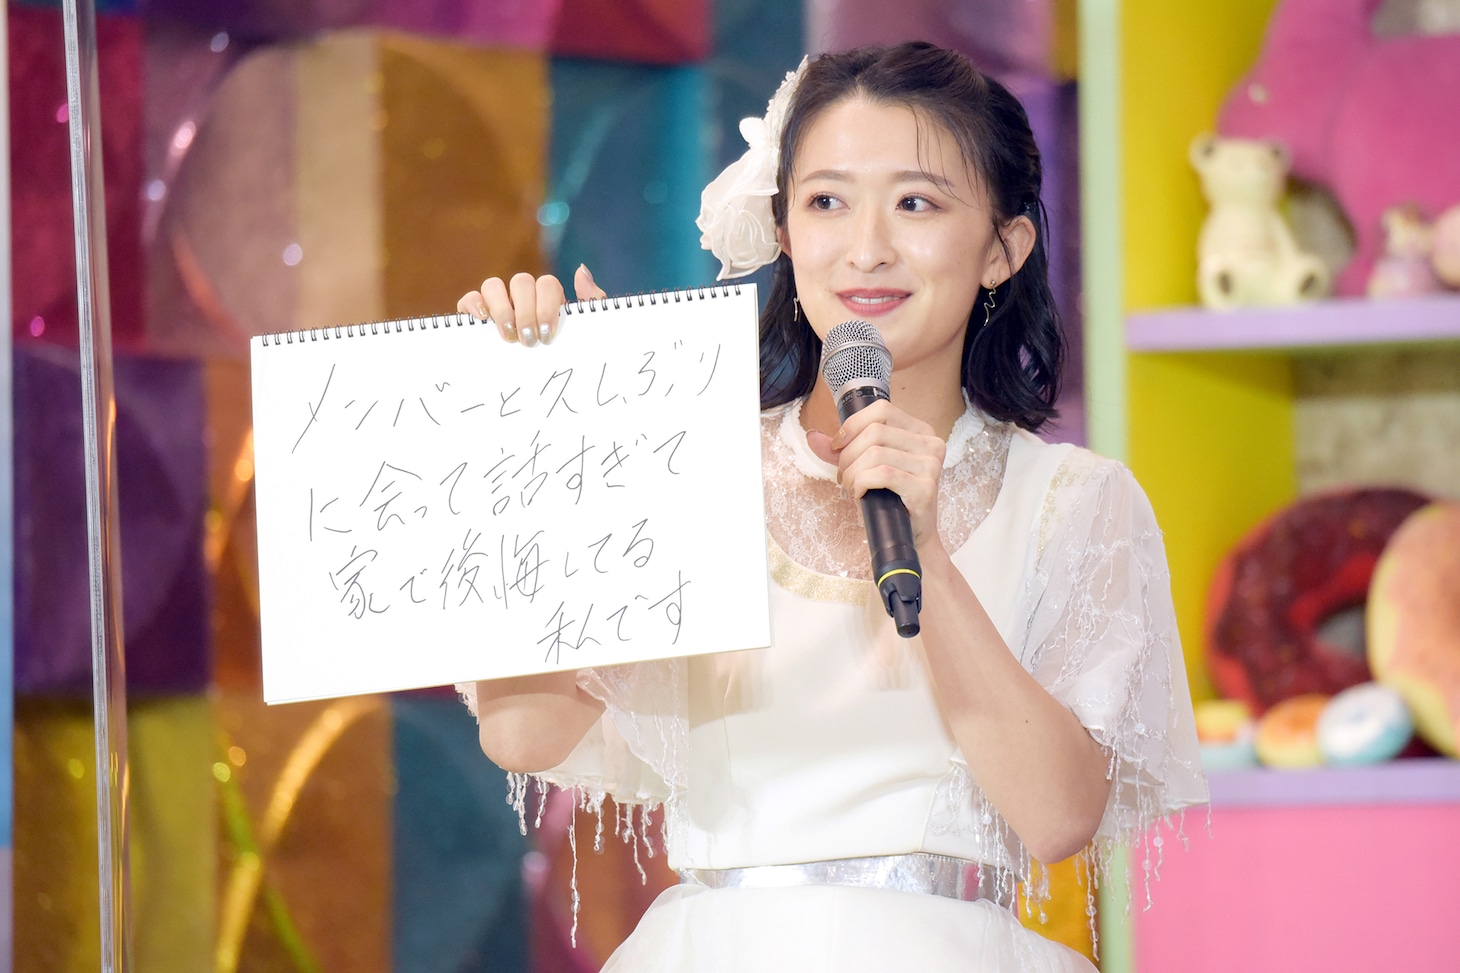 メンバーと久しぶり
に会って話すぎて
家で後悔してる
私です